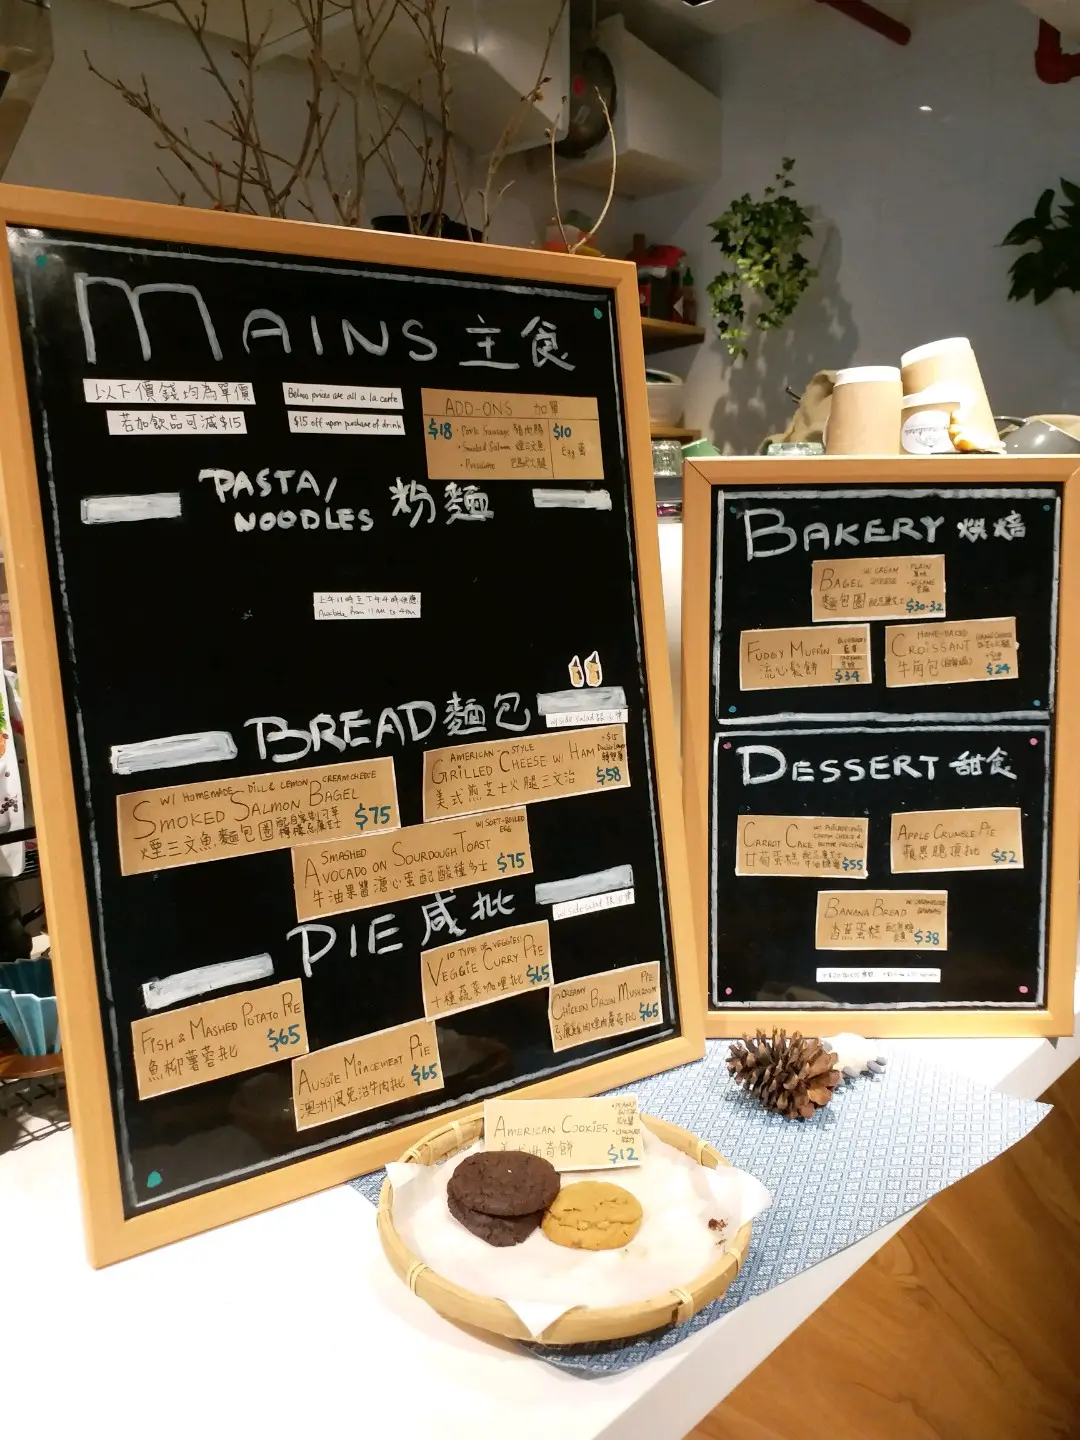 MAINS 主食
以下價錢均為單價
若加飲品可減$15
Below prices are all a la carte
$15 off upon purchase of drink
ADD-ONS 加單
$18 • Pork Sausage 豬肉腸
• Smoked Salmon 煙三文魚
• Prosciutto 巴馬火腿
$10
Egg 蛋
PASTA/
NOODLES 粉麵
上午11時至下午4時供應
Available from 11am to 4pm
BREAD 麵包
w/ side salad
W/ HOMEMADE DILL & LEMON CREAM CHEESE
SMOKED SALMON BAGEL
煙三文魚麵包圈
$75
AMERICAN-STYLE
GRILLED CHEESE W/ HAM
美式煎芝士火腿三文治
+$15
$58
SMASHED
W/ SOFT-BOILED
EGG
AVOCADO ON SOURDOUGH TOAST
牛油果醬溏心蛋配酸種多士
$75
PIE 咸批
w/ side salad
10 TYPES OF VEGGIES
VEGGIE CURRY PIE
十種蔬菜咖哩批
$65
FISH & MASHED POTATO PIE
魚柳薯蓉批
$65
CREAMY
CHICKEN BACON MUSHROOM PIE
$65
AUSSIE MINCEMEAT PIE
澳洲風免治牛肉批
$65
BAKERY 烘焙
BAGEL W/ CREAM CHEESE
麵包圈 配忌廉芝士
• PLAIN
原味
• SESAME
芝麻
$30-32
FUDGY MUFFIN
流心鬆餅
$34
HOME-BAKED
CROISSANT
牛角包
$24
DESSERT 甜食
CARROT CAKE
W/ PHILADELPHIA
CREAM CHEESE &
BUTTER FROSTING
甘荀蛋糕
$55
APPLE CRUMBLE PIE
蘋果脆頂批
$52
BANANA BREAD
W/ CARAMELIZED
BANANAS
香蕉蛋糕
$38
AMERICAN COOKIES
• PEANUT
BUTTER
• CHOCOLATE
$12